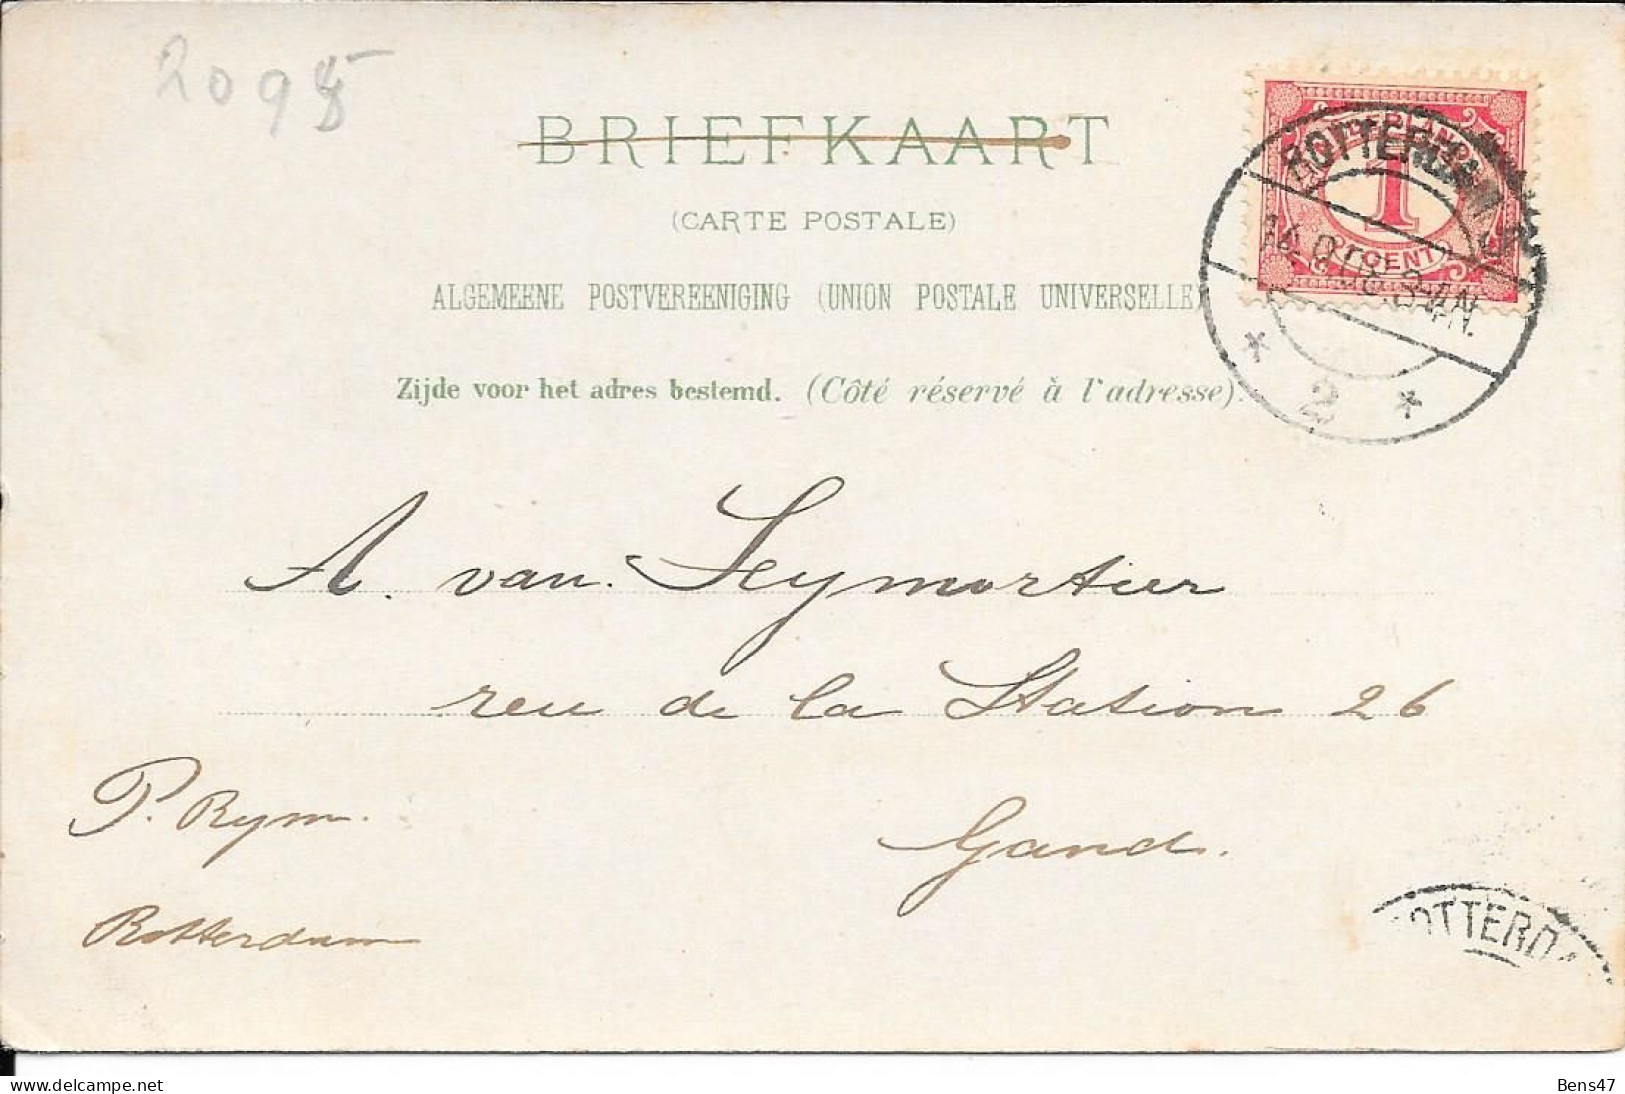 2095
BRIEFKAART
(CARTE POSTALE)
ALGEMEENE POSTVEREENIGING (UNION POSTALE UNIVERSELLE)
Zijde voor het adres bestemd. (Côté réservé à l'adresse).
NEDERLAND
1
CENT
ROTTERDAM
8-9N.
* 2 *
A. van Seymortier
reu de la Station 26
Gand.
P. Rym.
Rotterdam
ROTTERDA
Bens47